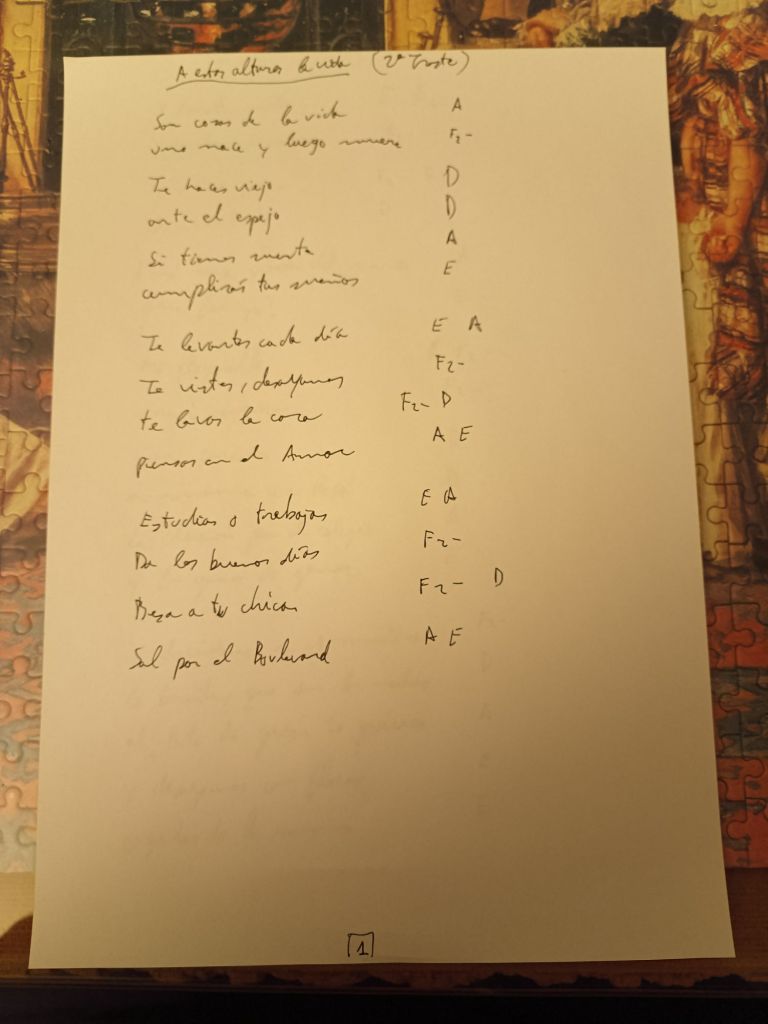 A estas alturas la vida (2º Traste)
Son cosas de la vida A
uno nace y luego muere F2-
Te haces viejo D
ante el espejo D
Si tienes suerte A
cumplirás tus sueños E
Te levantas cada día E A
Te vistes, desayunas F2-
te lavas la cara F2- D
piensas en el Amor A E
Estudias o trabajas E A
Da los buenos días F2-
Besa a tu chica F2- D
Sal por el Boulevard A E
1